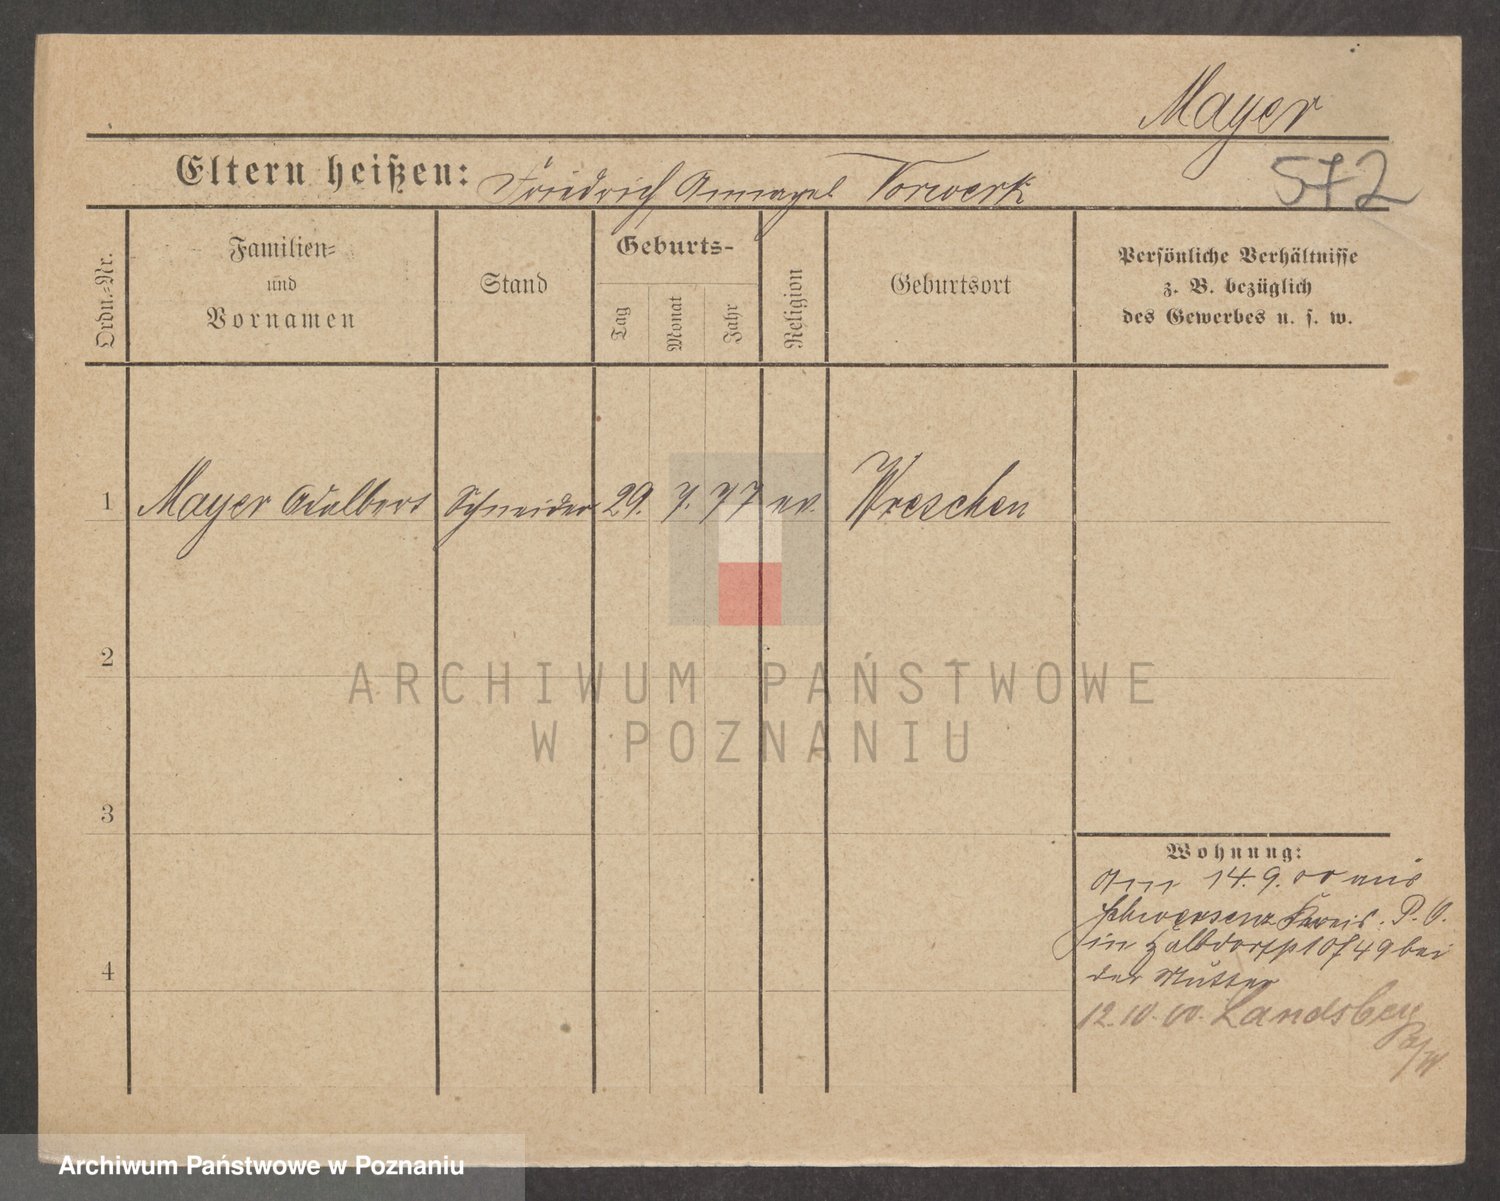 Mayer
572
Eltern heißen: Friedrich Vorwerk
Ordn.-Nr.
Familien-
und
Vornamen
Stand
Geburts-
Tag
Monat
Jahr
Religion
Geburtsort
Persönliche Verhältnisse
z. B. bezüglich
des Gewerbes u. s. w.
1 Mayer Adalbert Schneider 29. 7. 77 ev. Wreschen
2
3
4
Wohnung:
Am 14. 9. 00 aus
Schwersenz Kreis. P. O.
in Halbdorfstr 49 bei
der Mutter
12. 10. 00. Landsberg
a/W
ARCHIWUM PAŃSTWOWE
W POZNANIU
Archiwum Państwowe w Poznaniu